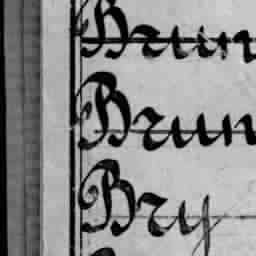 Brun
Brun
Bry